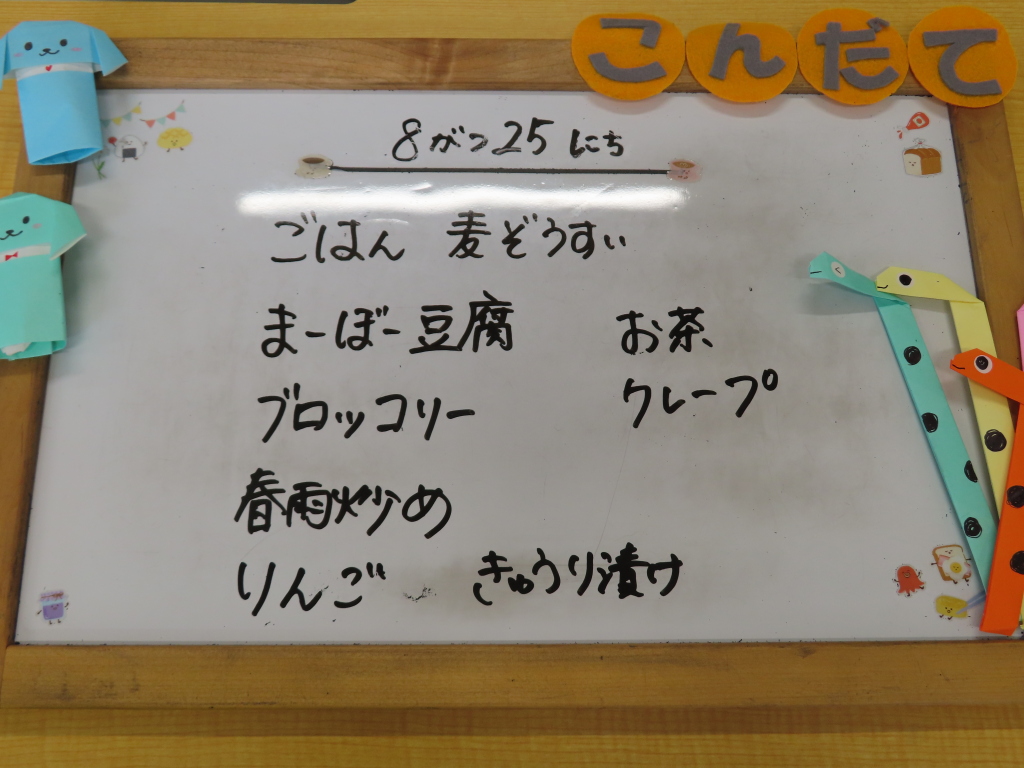 こんだて
8がつ25にち
ごはん 麦ぞうすい
まーぼー豆腐 お茶
ブロッコリー クレープ
春雨炒め
りんご きゅうり漬け